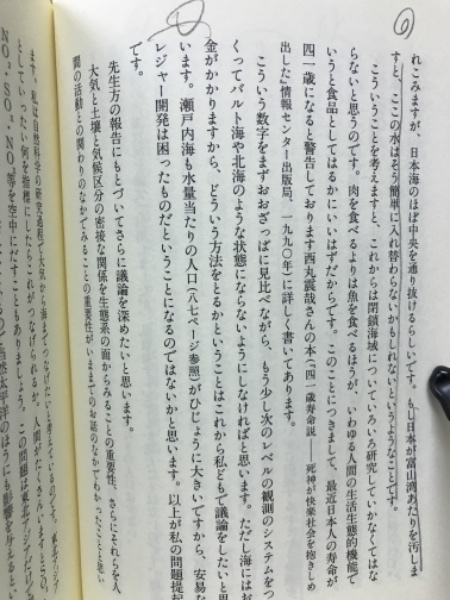 れこみますが、日本海のほぼ中央を通り抜けるらしいです。もし日本が富山湾あたりを汚しま
すと、ここの水はそう簡単に入れ替わらないかもしれないというようなことです。
こういうことを考えますと、これからは閉鎖海域についていろいろ研究していかなくてはな
らないと思うのです。肉を食べるよりは魚を食べるほうが、いわゆる人間の生活生態的機能で
いうと食品としてはるかにいいはずだからです。このことにつきまして、最近日本人の寿命が
四一歳になると警告しております西丸震哉さんの本(『四一歳寿命説――死神が快楽社会を抱きしめ
出した』情報センター出版局、一九九〇年)に詳しく書いてあります。
こういう数字をまずおおざっぱに見比べながら、もう少し次のレベルの観測のシステムをつ
くってバルト海や北海のような状態にならないようにしなければと思います。ただし海にはお
金がかかりますから、どういう方法をとるかということはこれから私どもで議論をしたいと思
います。瀬戸内海も水量当たりの人口(八七ページ参照)がひじょうに大きいですから、安易な
レジャー開発は困ったものだということになるのではないかと思います。以上が私の問題提起
です。
先生方の報告にもとづいてさらに議論を深めたいと思います。
大気と土壌と気候区分の密接な関係を生態系の面からみることの重要性、さらにそれらを人
間の活動との関わりのなかでみることの重要性がいままでのお話のなかでわかったことと思い
ます。私は自然科学の研究過程で大気から海までつなげたいと考えているのです。東北アジア
としていったい何を指標にしたらこれがつなげられるか。人間がたくさんいますとSO₂、
NO₂、SO₃、NO₃等を空中にだすこともありましょう。この問題は東北アジアだけ
太平洋のほうにも影響を与えるとい